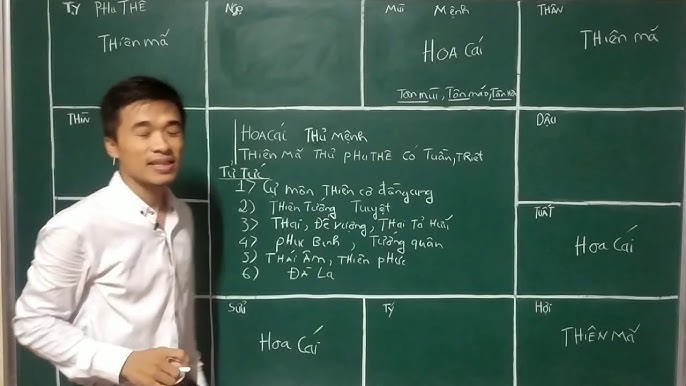 TỴ PHU THÊ
THIÊN MÃ
NGỌ
MÙI MỆNH
HOA CÁI
TÂN MÙI, TÂN MÁO,
THÂN
THIÊN MÃ
THÌN
HOA CÁI THỦ MỆNH
THIÊN MÃ THỦ PHU THÊ CÓ TUẦN, TRIỆT
TỬ TỨC
1) CỰ MÔN THIÊN CƠ ĐỒNG CUNG
2) THIÊN TƯỚNG TUYỆT
3) THAI, ĐẾ VƯỢNG, THAI TỌA HƯỚI
4) PHỤC BINH, TƯỚNG QUÂN
5) THÁI ÂM, THIÊN PHÚC
6) ĐÀ LA
DẬU
TUẤT
HOA CÁI
SỬU
HOA CÁI
TÝ
HỢI
THIÊN MÃ